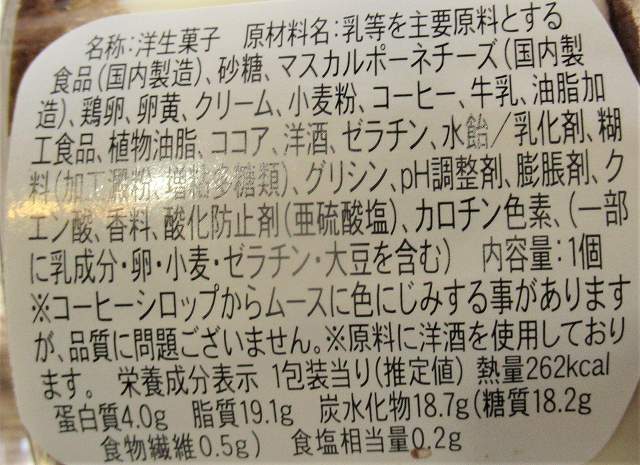 名称:洋生菓子 原材料名:乳等を主要原料とする
食品(国内製造)、砂糖、マスカルポーネチーズ(国内製
造)、鶏卵、卵黄、クリーム、小麦粉、コーヒー、牛乳、油脂加
工食品、植物油脂、ココア、洋酒、ゼラチン、水飴/乳化剤、糊
料(加工澱粉、増粘多糖類)、グリシン、pH調整剤、膨脹剤、ク
エン酸、香料、酸化防止剤(亜硫酸塩)、カロチン色素、(一部
に乳成分・卵・小麦・ゼラチン・大豆を含む) 内容量:1個
※コーヒーシロップからムースに色にじみする事があります
が、品質に問題ございません。※原料に洋酒を使用しており
ます。 栄養成分表示 1包装当り(推定値) 熱量262kcal
蛋白質4.0g 脂質19.1g 炭水化物18.7g(糖質18.2g
食物繊維0.5g) 食塩相当量0.2g